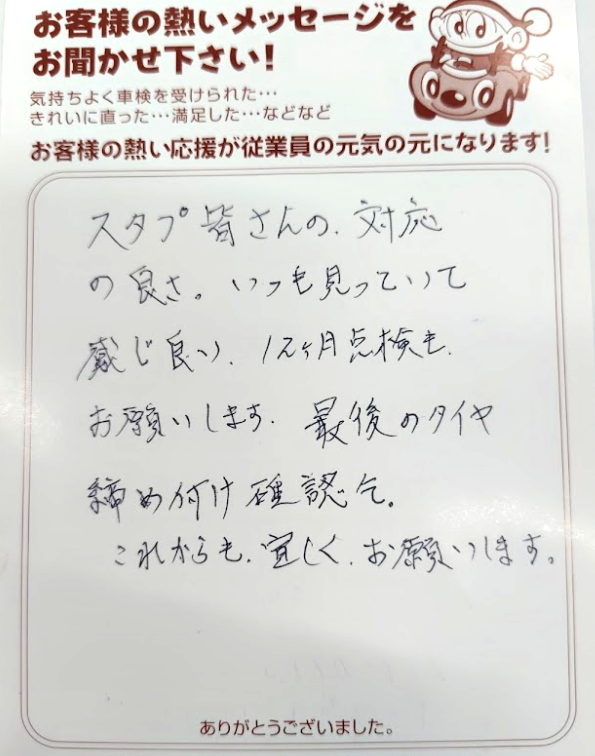 お客様の熱いメッセージを
お聞かせ下さい！
気持ちよく車検を受けられた…
きれいに直った…満足した…などなど
お客様の熱い応援が従業員の元気の元になります！
スタプ皆さんの、対応
の良さ。いつも見っていて
感じ良い、12ヶ月点検も、
お願いします、最後のタイヤ
締め付け確認を。
これからも、宜しく、お願いします。
ありがとうございました。